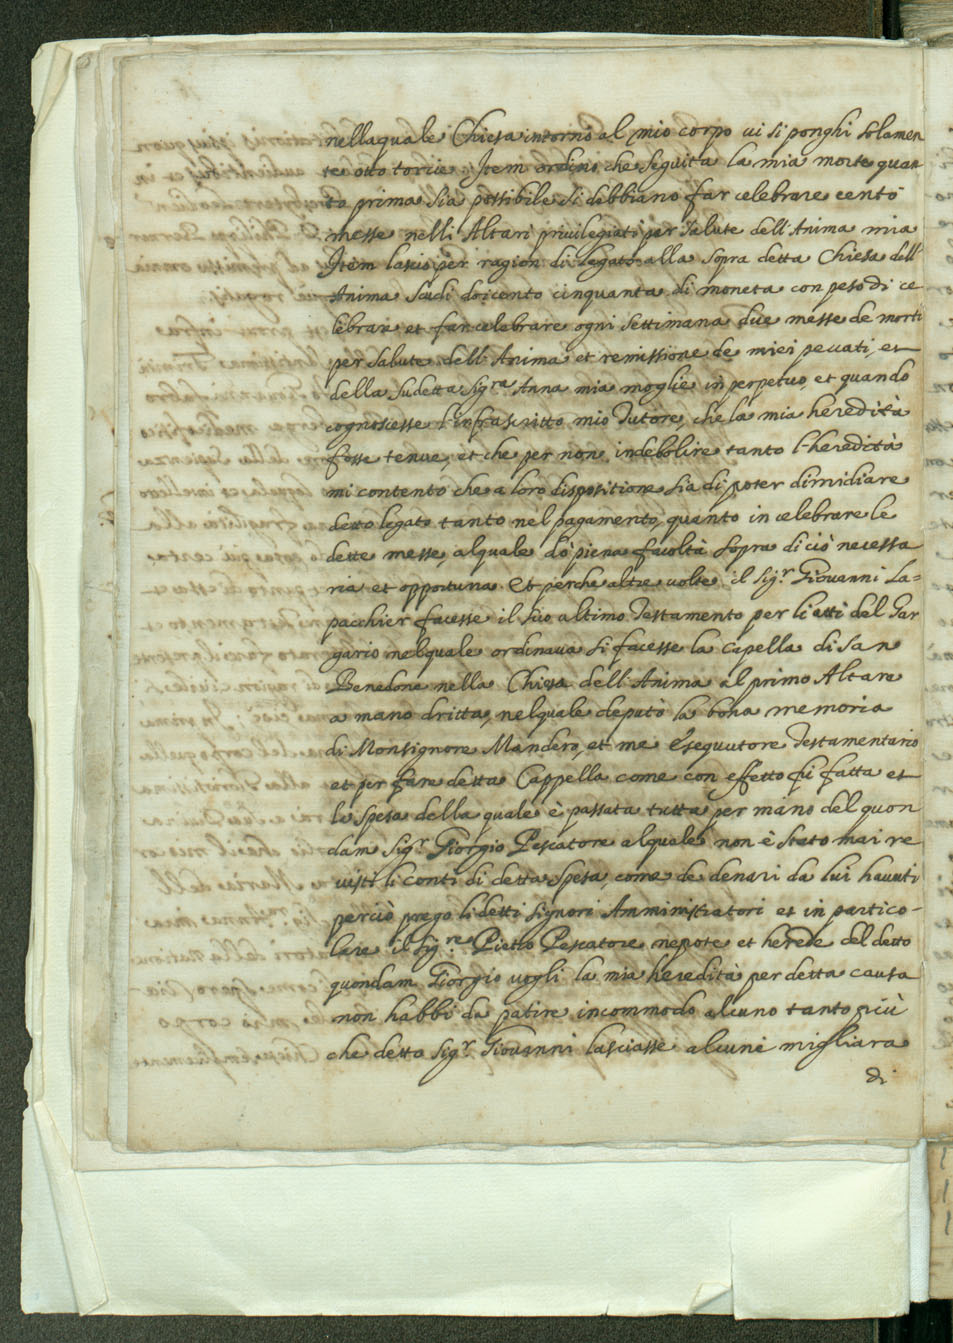 nella quale Chiesa intorno al mio corpo vi si ponghi solamen
te otto torcie. Item ordino, che seguita la mia morte quan
to prima sia possibile si debbiano far celebrare cento
messe nelli Altari privilegiati per salute dell'Anima mia
Item lascio per ragion di legato alla sopra detta Chiesa dell'
Anima scudi doicento cinquanta di moneta con peso di ce
lebrare et far celebrare ogni settimana due messe de morti
per salute dell'Anima et remissione de miei peccati, et
della sudetta Sig.ra Anna mia moglie in perpetuo, et quando
cognoscesse l'infrascritto mio Tutore, che la mia heredità
fosse tenue, et che per non indebolire tanto l'heredità
mi contento che a loro dispositione sia di poter dimidiare
detto legato tanto nel pagamento, quanto in celebrare le
dette messe, al quale dò piena facoltà sopra di ciò necessa
ria et opportuna. Et perche altre volte il Sig.r Giovanni La=
pacchier facesse il suo ultimo Testamento per li atti del Gar
gario nel quale ordinava si facesse la Capella di San
Bennone nella Chiesa dell'Anima al primo Altare
a mano dritta, nel quale deputò la bona memoria
di Monsignore Mandero, et me essequutore Testamentario
et per fare detta Cappella come con effetto fu fatta et
le spesa della quale è passata tutta per mano del quon
dam Sig.r Giorgio Pescatore al quale non è stato mai re
visti li conti di detta spesa, come de denari da lui havuti
perciò prego li detti Signori Amministratori et in partico-
lare il Sig.re Pietro Pescatore nepote et herede del detto
quondam Giorgio vogli la mia heredità per detta causa
non habbi da patire incommodo alcuno tanto più
che detto Sig.r Giovanni lasciasse alcune migliara
di